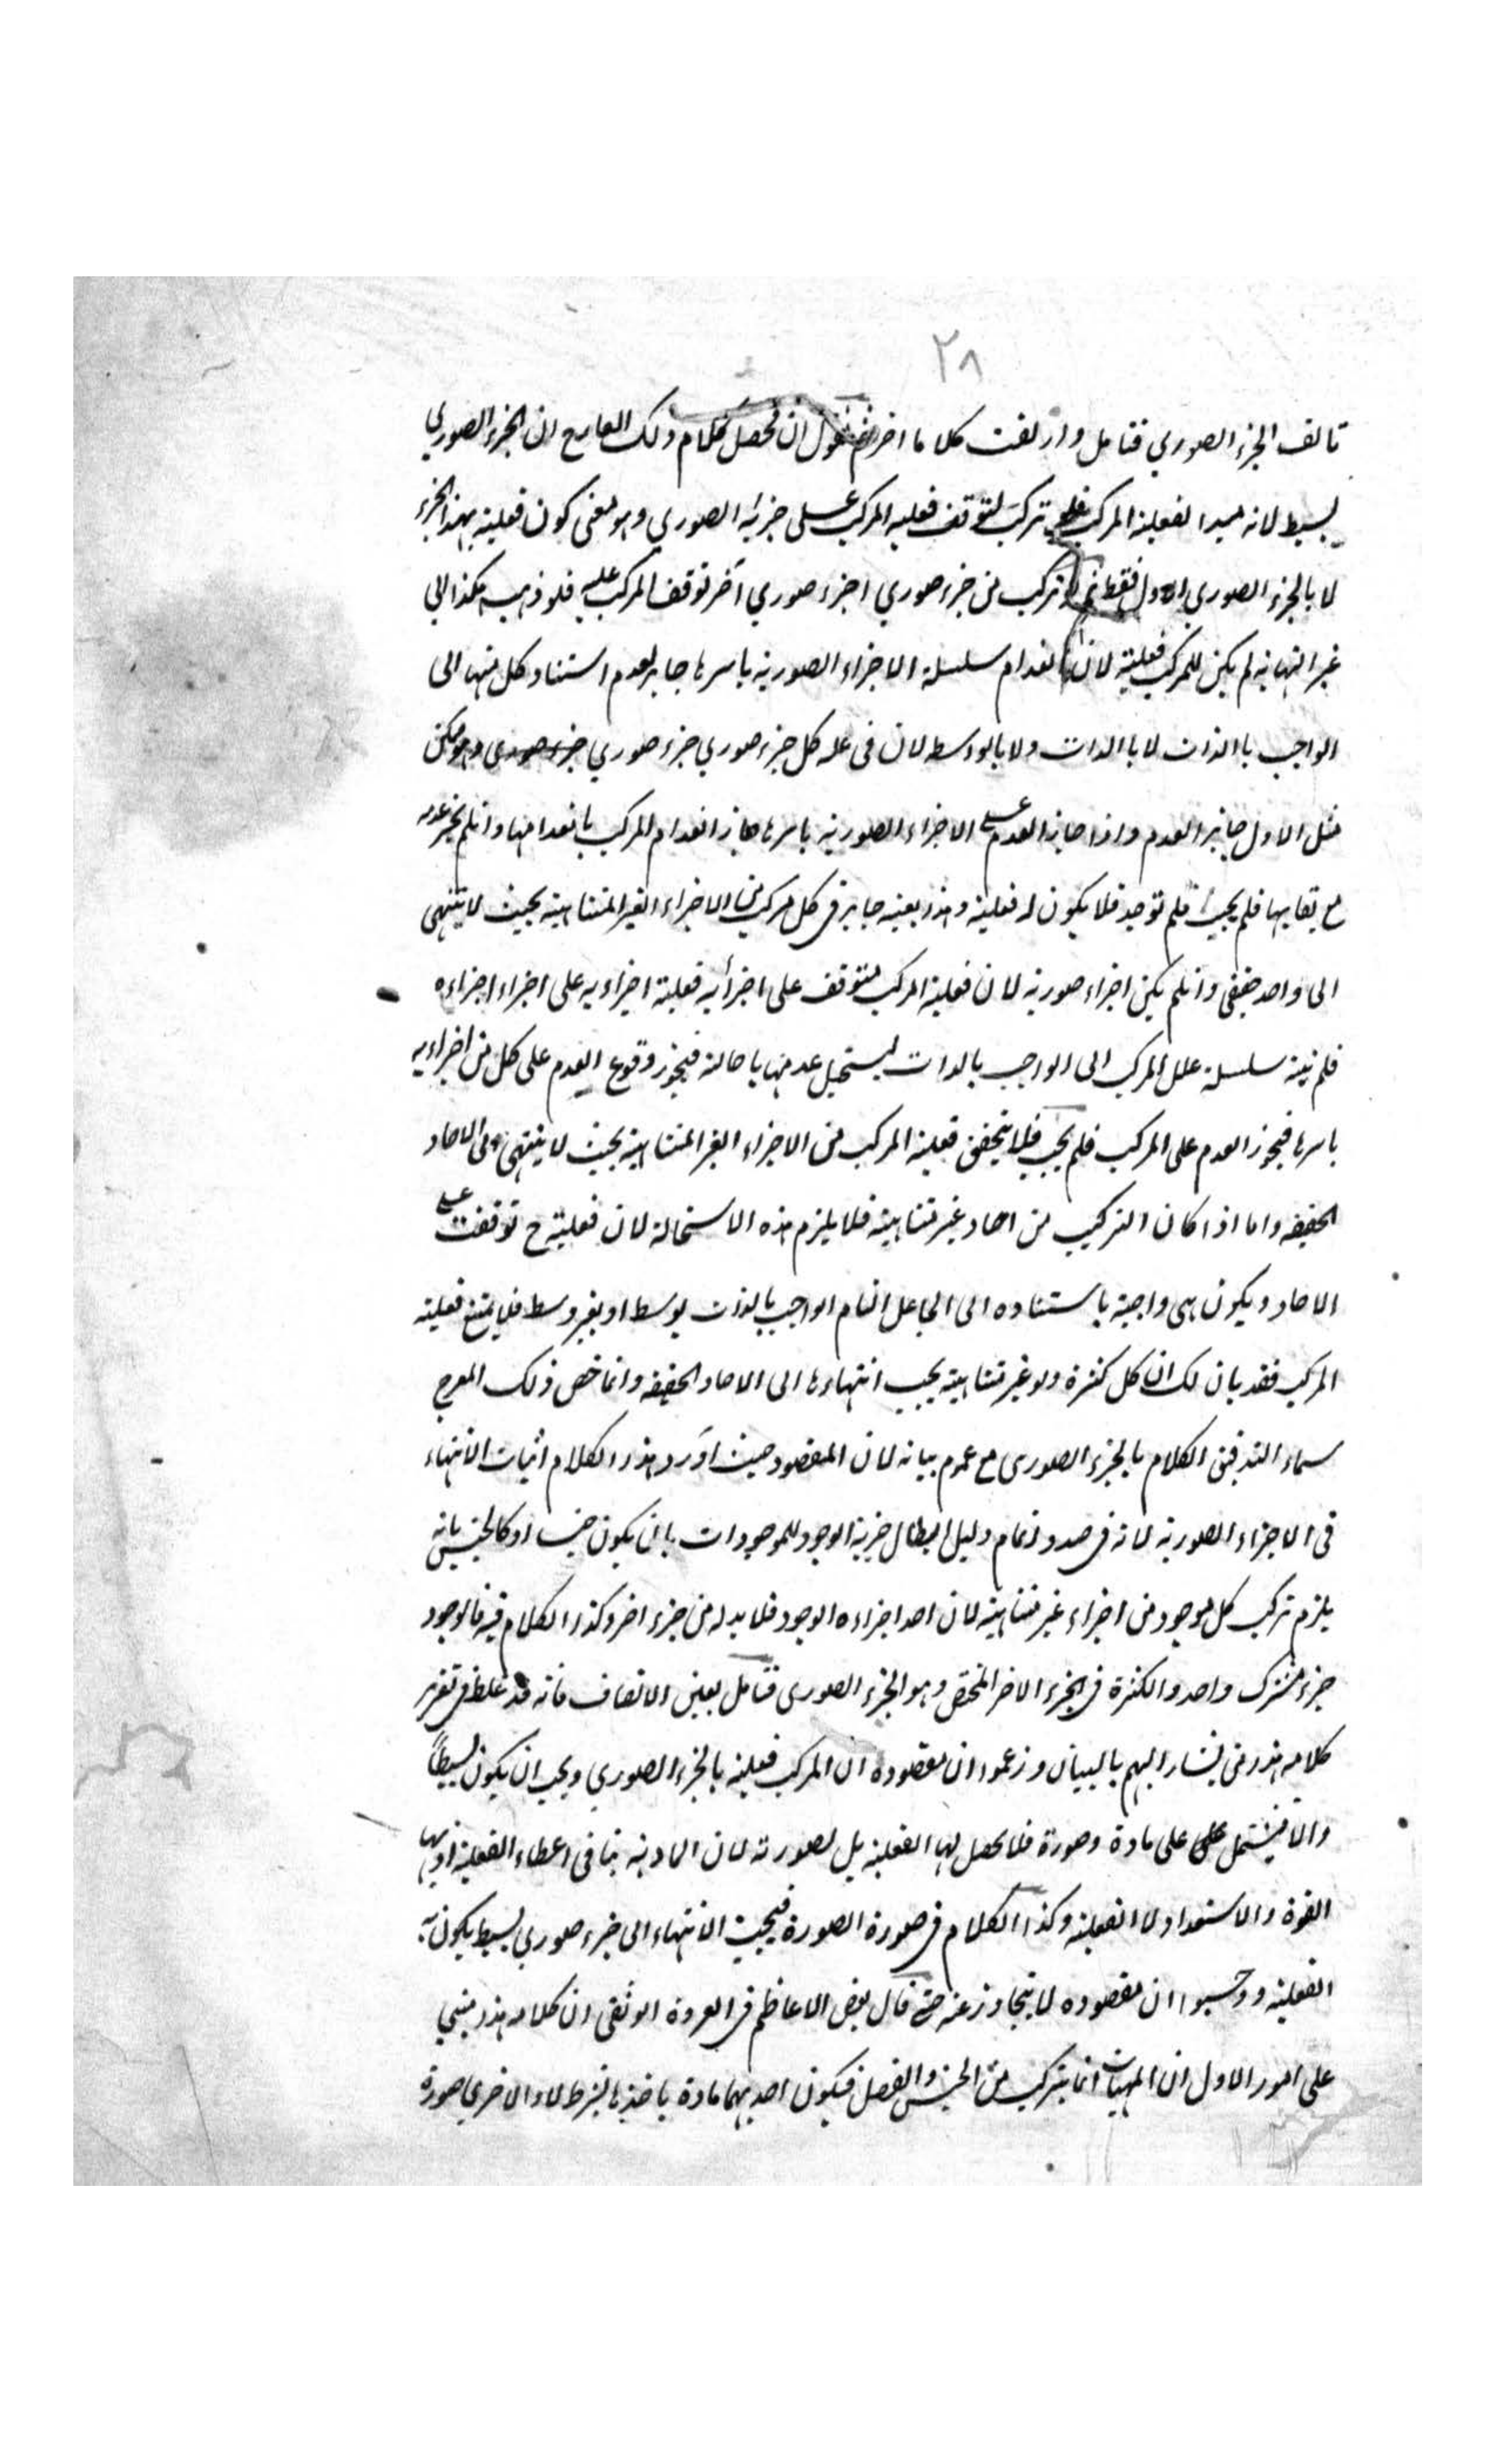 ٢٨
تالف الجزء الصوري فتامل واذ لغت كلاما اخر نقول ان محصل كلام ذلك العارج ان الجزء الصوري
بسيط لانه مبدا لفعلية المركب فلو تركب لتوقف فعلية المركب على جزئه الصوري وهو معنى كون فعلية بهذا الجزء
لا بالجزء الصوري الاول فقط ثم لو تركب من جزء صوري اجزء صوري آخر توقف المركب عليه فلو ذهب هكذا الى
غير النهاية لم يكن للمركب فعلية لان انعدام سلسلة الاجزاء الصورية باسرها جايز لعدم استناد كل منها الى
الواجب باالذات لا باالذات ولا بالوسط لان فى علة كل جزء صوري جزء صوري وهو ممكن
مثل الاول جايز العدم واذا جاز العدم على الاجزاء الصورية باسرها جاز انعدام المركب بانعدامها وانلم يجز عدمه
مع بقايها فلم يجب فلم توجد فلا يكون له فعلية وهذا بعينه جايز فى كل مركب من الاجزاء الغير المتناهية بحيث لا ينتهى
الى واحد حقيقى وانلم يكن اجزاء صورية لان فعلية المركب متوقف على اجزأيه فعلية اجزاءيه على اجزاء اجزاءه
فلم ينته سلسلة علل المركب الى الواجب بالذات ليستحيل عدمها باحالته فيجوز وقوع العدم على كل من اجزاءيه
باسرها فيجوز العدم على المركب فلم يجب فلا يتحقق فعلية المركب من الاجزاء الغير المتناهية بحيث لا ينتهى الى الاحاد
الحقيقه واما اذا كان التركيب من احاد غير متناهية فلا يلزم هذه الاستحالة لان فعليته ح توقفت على
الاحاد ويكون هى واجبة باستناده الى الجاعل التام الواجب بالذات بوسط او بغير وسط فلا يمتنع فعلية
المركب فقد بان لك ان كل كثرة ولو غير متناهية يجب انتهاءها الى الاحاد الحقيقه وانما خص ذلك المعرج
سماء التدقيق الكلام بالجزء الصورى مع عموم بيانه لان المقصود حيث اورد هذا الكلام اثبات الانتهاء
فى الاجزاء الصورية لانه فى صدد اتمام دليل ابطال جزئية الوجود للموجودات بان يكون جنسا او كالجنس بانه
يلزم تركب كل موجود من اجزاء غير متناهية لان احد اجزاءه الوجود فلا بد له من جزء اخر وكذا الكلام فيه فالوجود
جزء مشترك واحد والكثرة فى الجزء الاخر المختص وهو الجزء الصورى فتامل بعين الانصاف فانه قد غلط فى تقرير
كلامه هذا من يشار اليهم بالبنان وزعموا ان مقصوده ان المركب فعليته بالجزء الصوري ويجب ان يكون بسيطاً
والا فيشتمل على على مادة وصورة فلا يحصل لها الفعلية بل لصورته لان المادية ينافى اعطاء الفعلية اذ بها
القوة والاستعداد لا الفعلية وكذا الكلام فى صورة الصورة فيجب الانتهاء الى جزء صوري بسيط يكون به
الفعلية ووحسبوا ان مقصوده لا يتجاوز عنه حتى قال بعض الاعاظم فى العروة الوثقى ان كلامه هذا مبني
على امور الاول ان المهيات انما يتركب من الجنس والفصل فيكون احديهما مادة باخذها بشرط لا والاخرى صورة